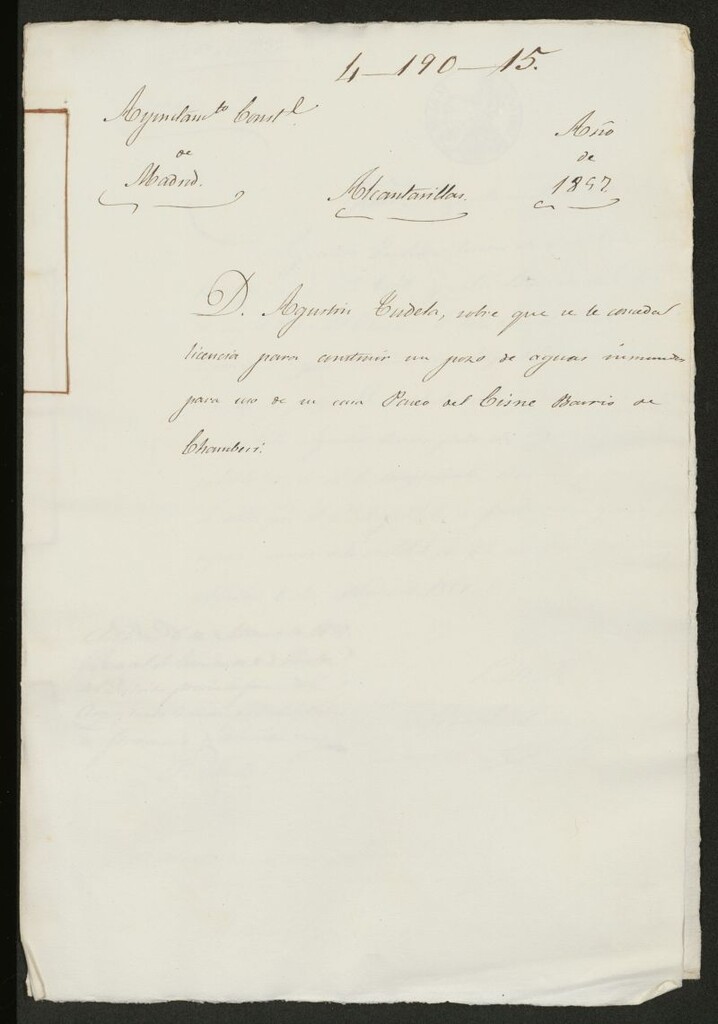 4—190—15.
Ayuntam.to Const.l
de
Madrid.
Alcantarillas.
Año
de
1857.
D. Agustin Tudela, sobre que se le conceda
licencia para construir un pozo de aguas inmundas
para uso de su casa Paseo del Cisne Barrio de
Chamberi.